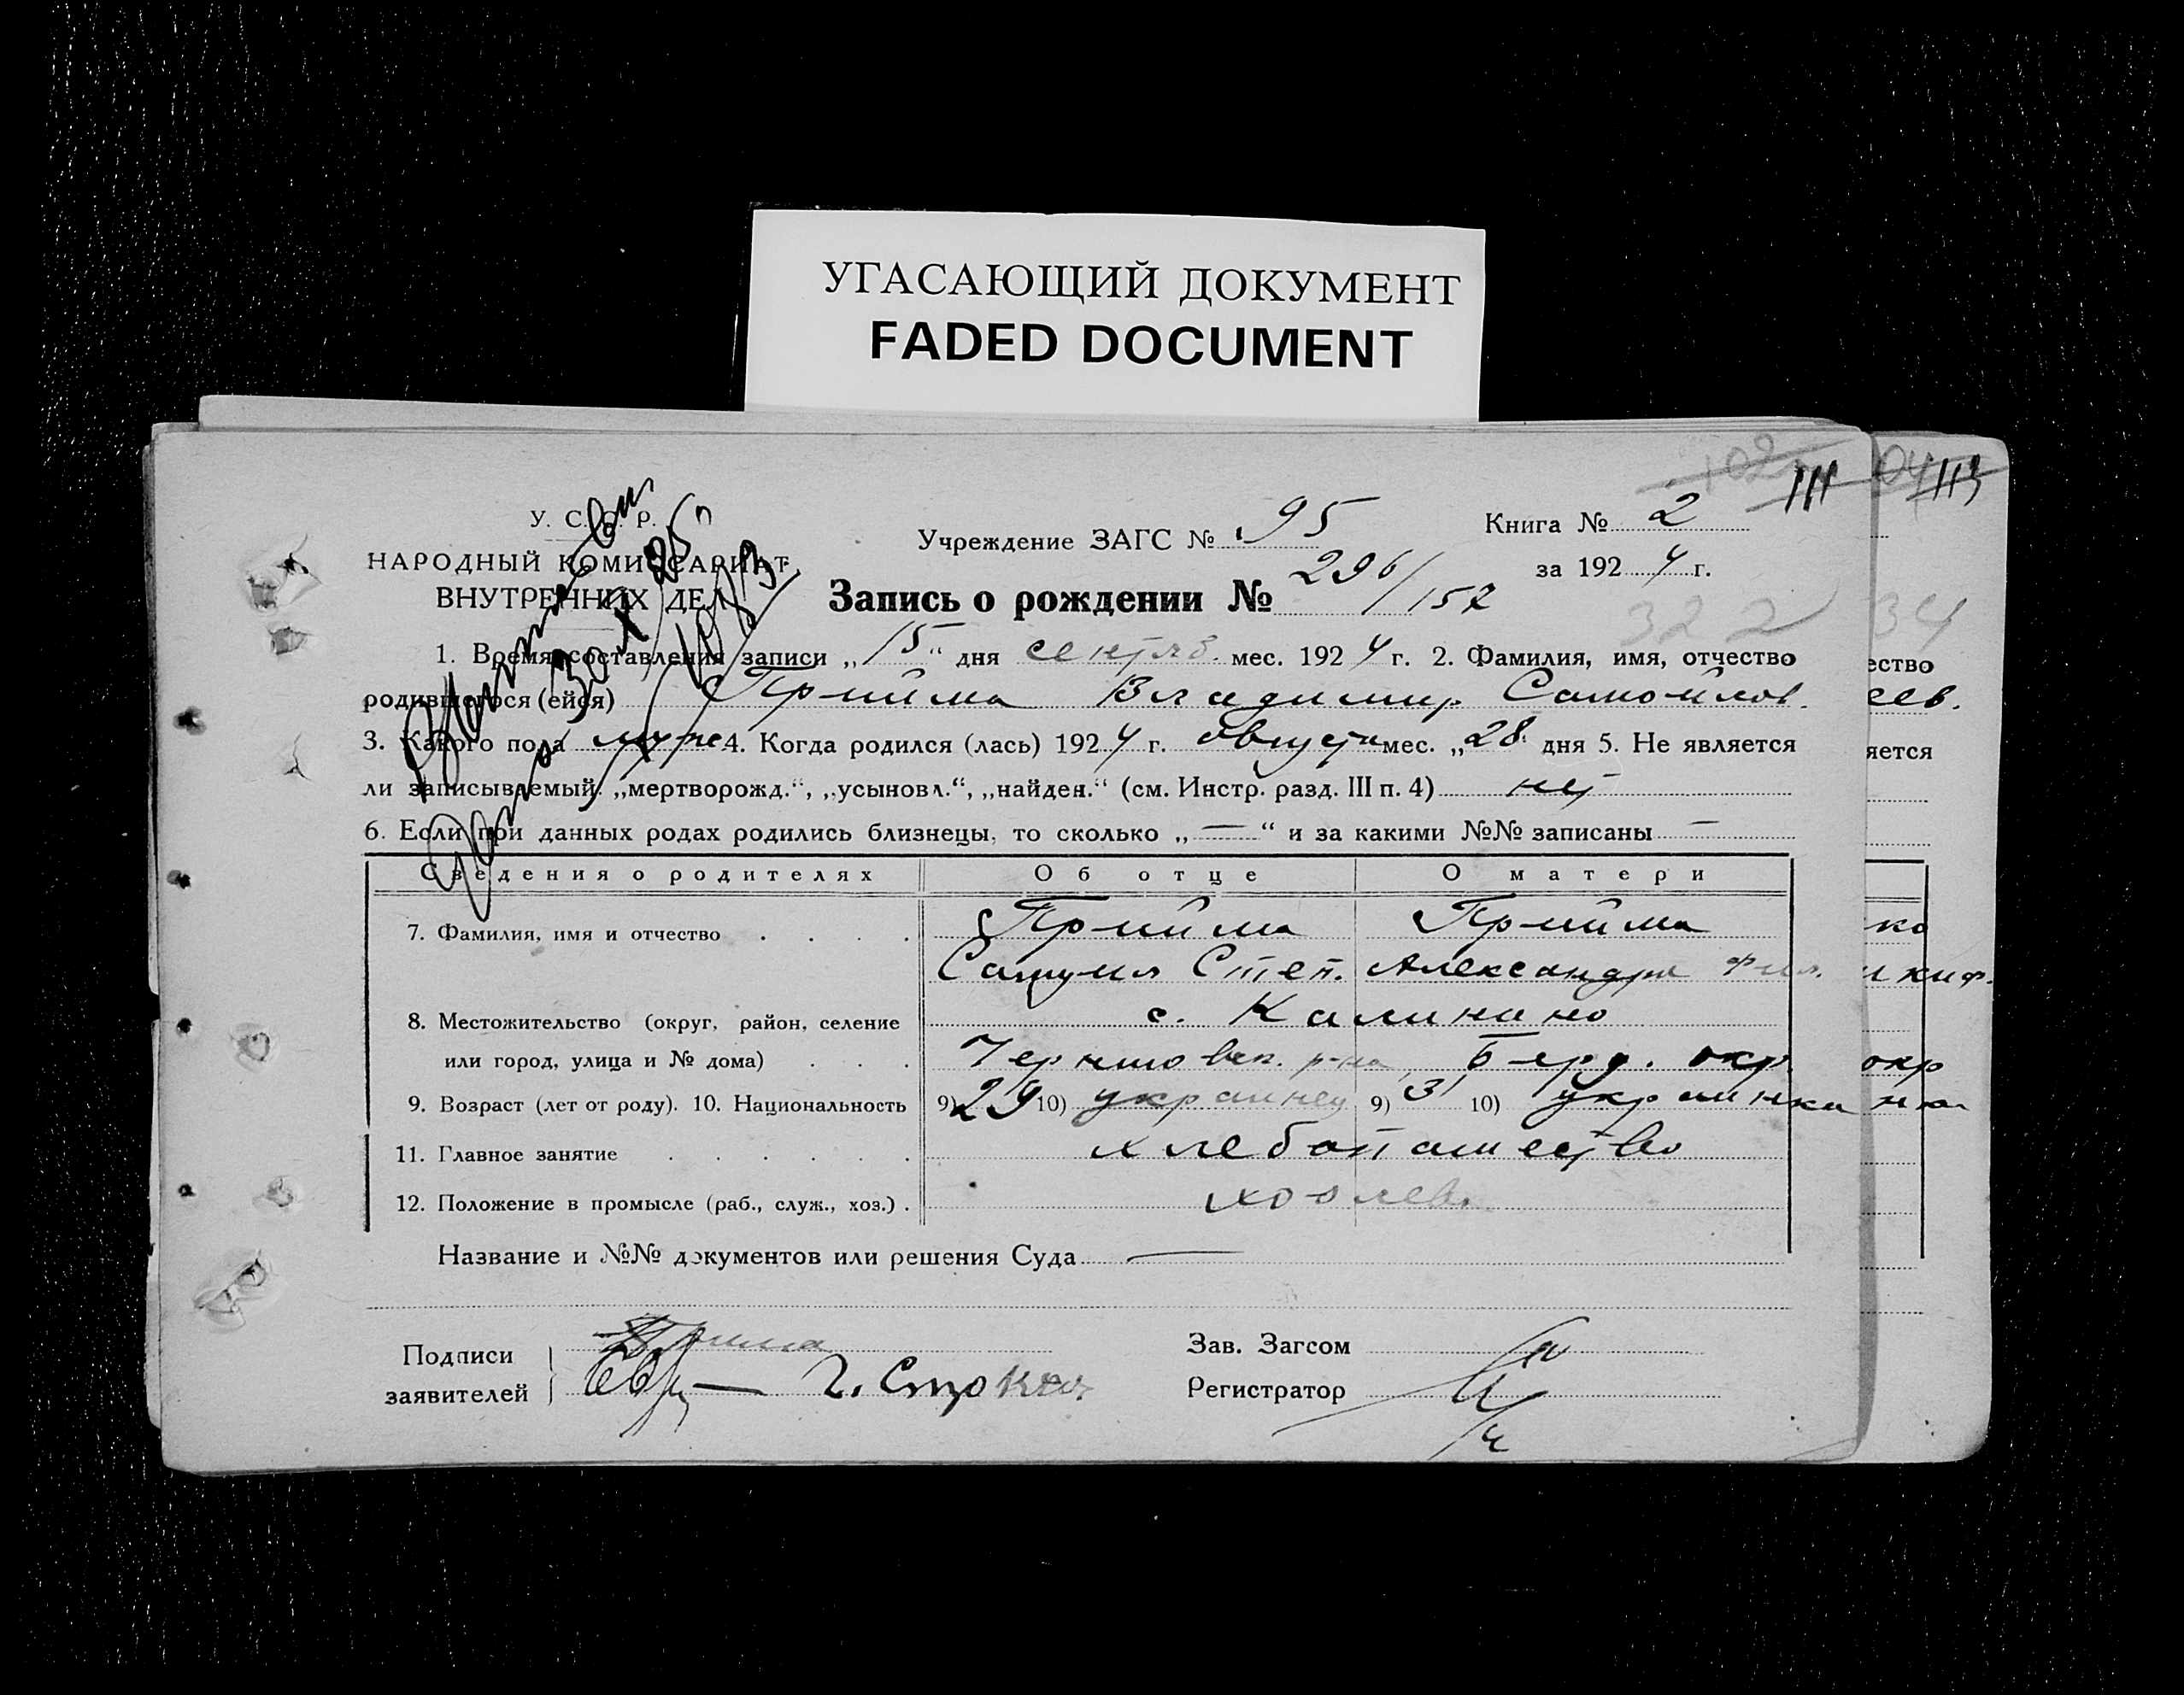 УГАСАЮЩИЙ ДОКУМЕНТ
FADED DOCUMENT
102 III 104 113
У. С. С. Р.
НАРОДНЫЙ КОМИССАРИАТ
ВНУТРЕННИХ ДЕЛ
Учреждение ЗАГС № 95
Книга № 2
за 1924 г.
Запись о рождении № 296/157
322 34
1. Время составления записи „15“ дня сентяб. мес. 1924 г. 2. Фамилия, имя, отчество
ество
родившегося (ейся) Прийма Владимир Самойлов.
еев.
3. Какого пола муж 4. Когда родился (лась) 1924 г. августа мес. „28“ дня 5. Не является
яется
ли записываемый: „мертворожд.“, „усыновл.“, „найден.“ (см. Инстр. разд. III п. 4) нет
6. Если при данных родах родились близнецы, то сколько „—“ и за какими №№ записаны —
Сведения о родителях Об отце О матери
7. Фамилия, имя и отчество . . . . Прийма Прийма
ко
Самуил Степ. Александра Фил.
икиф.
8. Местожительство (округ, район, селение с. Калинино
или город, улица и № дома) . . . р-на, Берд. окр.
окр
9. Возраст (лет от роду). 10. Национальность 9) 29 10) украинец 9) 31 10) украинка
нка
11. Главное занятие . . . . . . хлебопашество
12. Положение в промысле (раб., служ., хоз.) . хозяев.
Название и №№ документов или решения Суда —
Подписи
заявителей
Прийма
Г. Сторож
Зав. Загсом
Регистратор